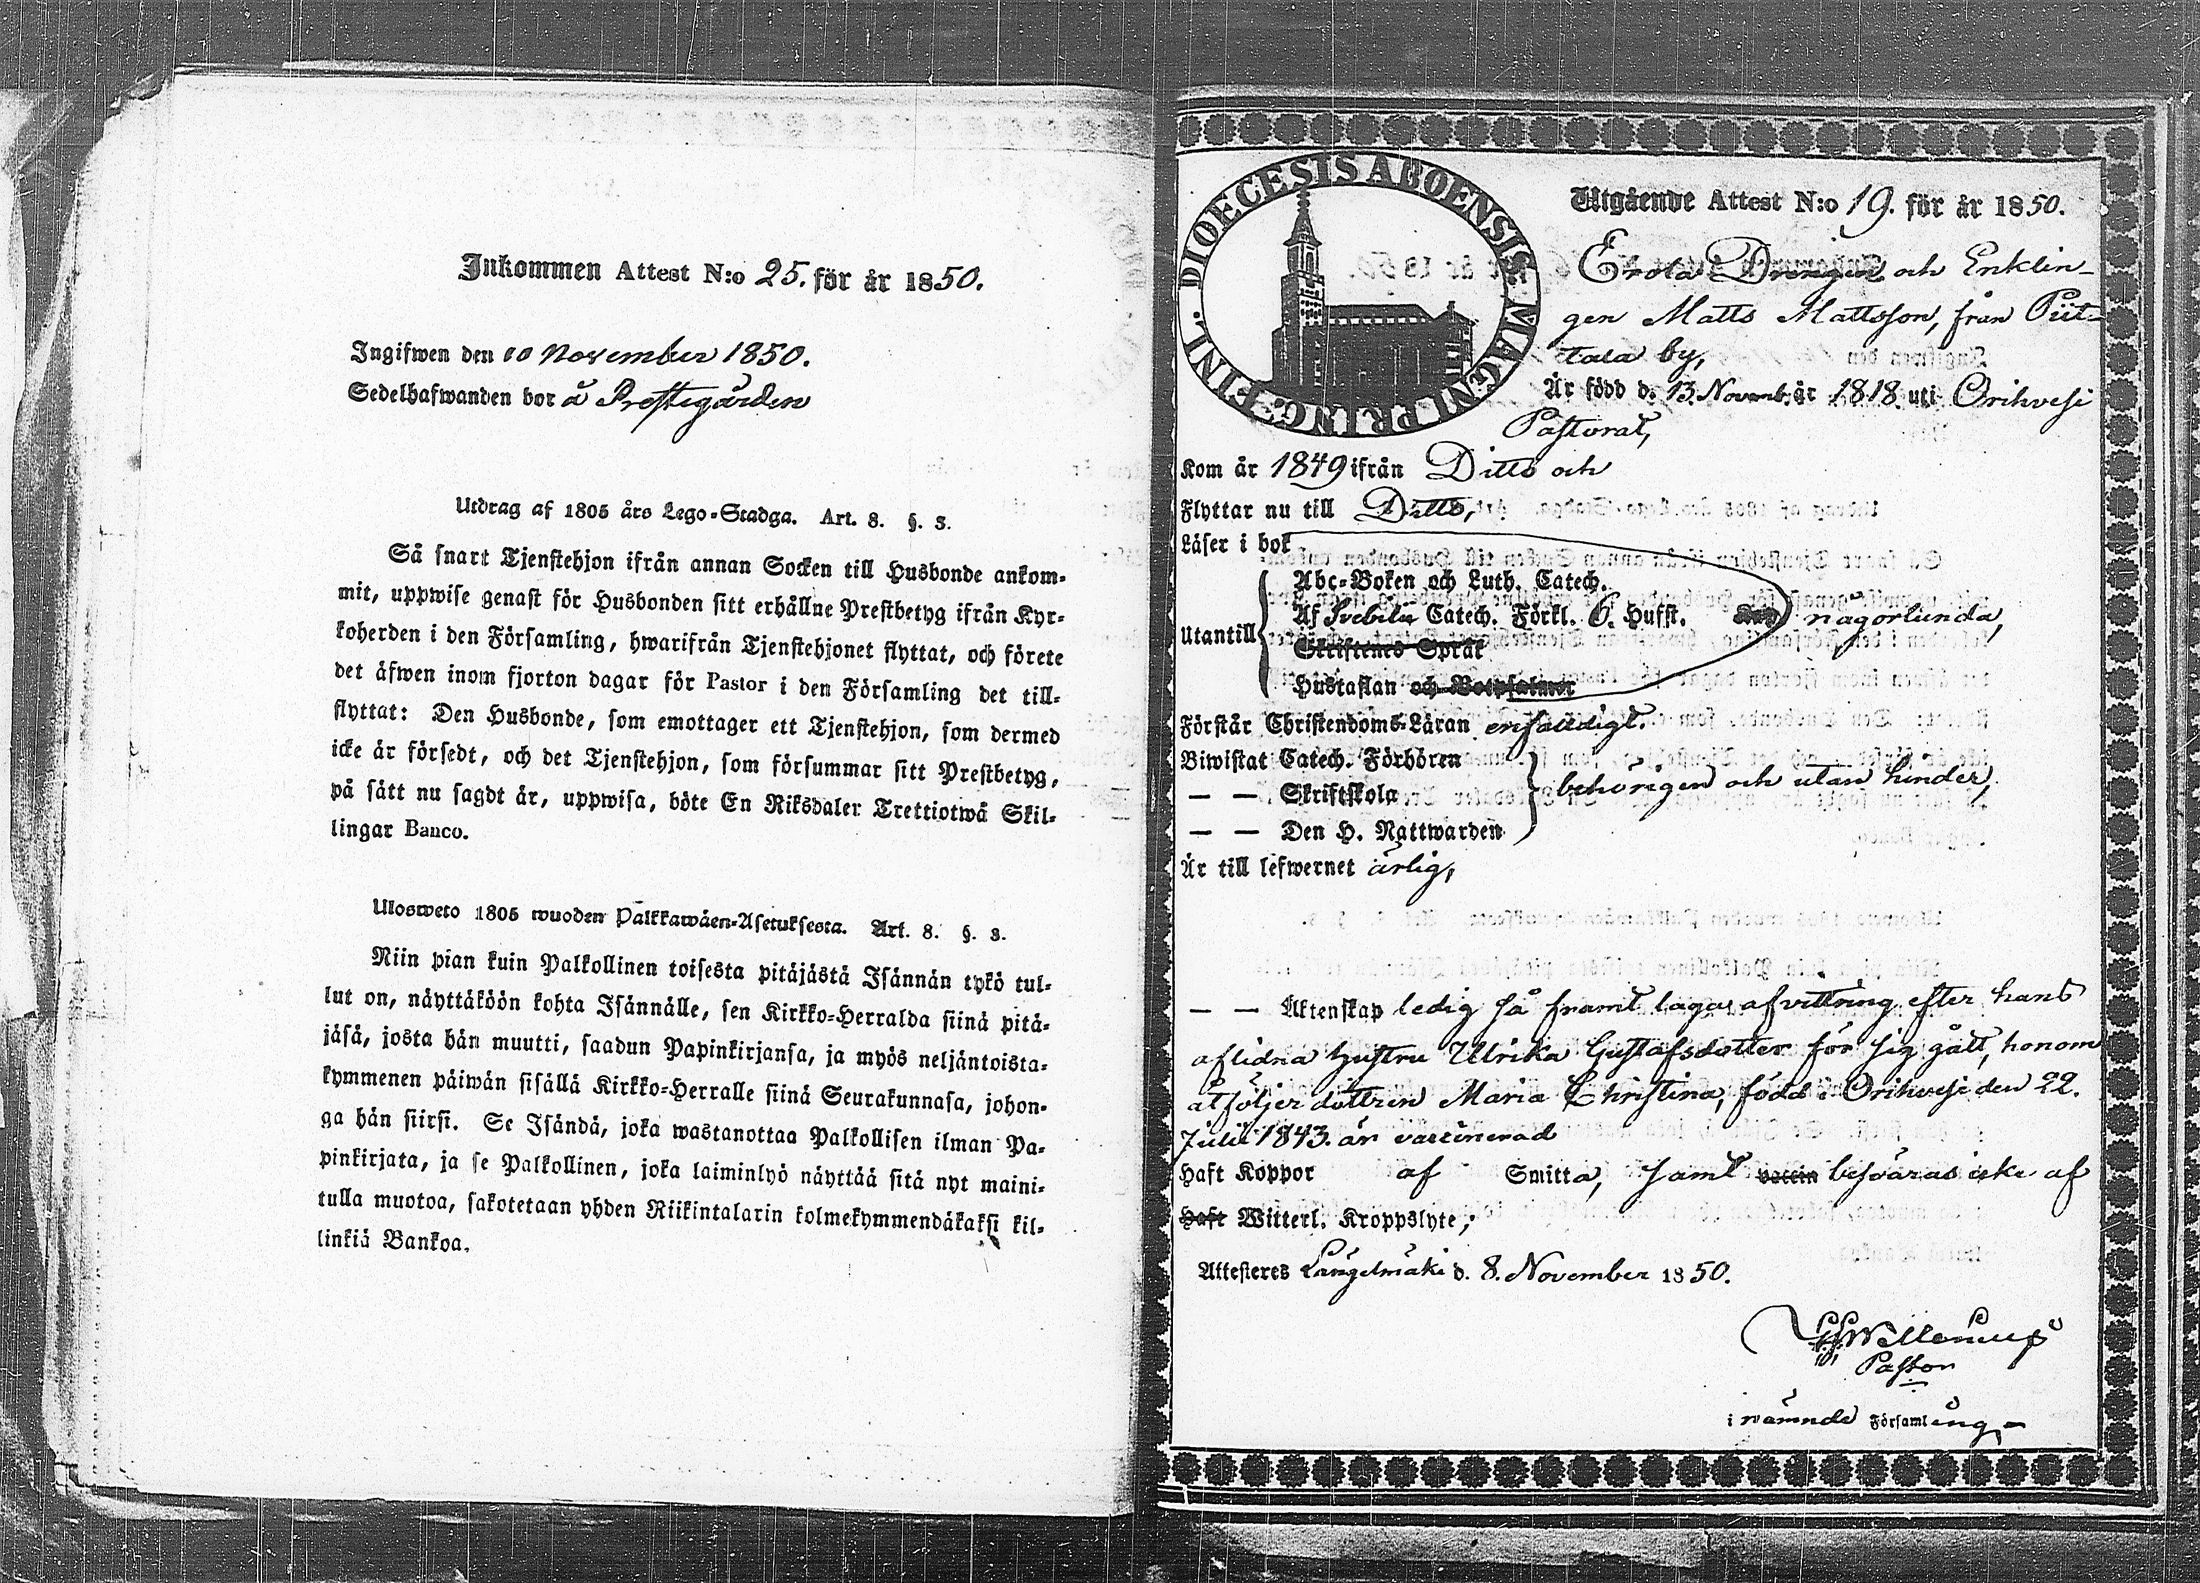 Inkommen Attest N:o 25. för år 1850.
Ingifwen den 10 November 1850.
Sedelhafwanden bor å Prestegården
Utdrag af 1805 års Lego-Stadga. Art. 8. §. 3.
Så snart Tjenstehjon ifrån annan Socken till Husbonde ankom-
mit, uppwise genast för Husbonden sitt erhållne Prestbetyg ifrån Kyr-
koherden i den Församling, hwarifrån Tjenstehjonet flyttat, och förete
det äfwen inom fjorton dagar för Pastor i den Församling det till-
flyttat: Den Husbonde, som emottager ett Tjenstehjon, som dermed
icke är försedt, och det Tjenstehjon, som försummar sitt Prestbetyg,
på sätt nu sagdt är, uppwisa, böte En Riksdaler Trettiotwå Skil-
lingar Banco.
Ulosweto 1805 wuoden Palkkawäen-Asetuksesta. Art. 8. §. 3.
Niin pian kuin Palkollinen toisesta pitäjästä Isännän tykö tul-
lut on, näyttäköön kohta Isännälle, sen Kirkko-Herralda siinä pitä-
jäsä, josta hän muutti, saadun Papinkirjansa, ja myös neljäntoista-
kymmenen päiwän sisällä Kirkko-Herralle siinä Seurakunnasa, johon-
ga hän siirsi. Se Isändä, joka wastanottaa Palkollisen ilman Pa-
pinkirjata, ja se Palkollinen, joka laiminlyö näyttää sitä nyt maini-
tulla muotoa, sakotetaan yhden Riikintalarin kolmekymmendäkaksi kil-
linkiä Bankoa.
DIOECESIS ABOENSIS MAGNI PRINC. FINL.
Utgående Attest N:o 19. för år 1850.
Erola Drengen och Enklin-
gen Matts Mattsson, från Piit-
tala by,
Är född d. 13. Novemb. år 1818. uti Orihvesi
Pastorat,
Kom år 1849 ifrån Ditto och
Flyttar nu till Ditto,
Läser i bok
Abc-Boken och Luth. Catech.
Utantill Af Svebilii Catech. Förkl. 6. Hufst. någorlunda,
Skriftenes Språk
Hustaflan och Botpsalmer
Förstår Christendoms-Läran enfaldigt.
Biwistat Catech. Förhören
— — Skriftskola behörigen och utan hinder,
— — Den H. Nattwarden
Är till lefwernet ärlig,
— — Äktenskap ledig så framt laga afvittring efter hans
aflidna hustru Ulrika Gustafsdotter för sig gått, honom
åtföljer dottren Maria Christina, född i Orihvesi den 22.
Julii 1843. är vaccinerad
Haft Koppor af Smitta, samt vaccin besväras icke af
Haft Witterl. Kroppslyte;
Attesteres Längelmäki d. 8. November 1850.
Pastor
i nämnde Församling